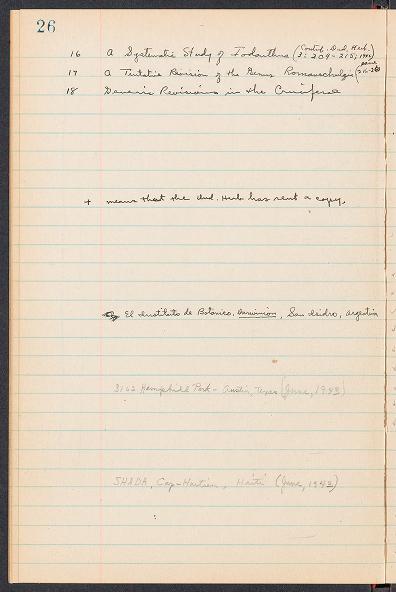 26
16 A Systematic Study of Iodanthus (Contrib. Dud. Herb. 3: 209-215, 1942)
17 A Tentative Revision of the Genus Romanschulzia (same
18 Generic Revisions in the Cruciferae
+ means that the Dud. Herb has sent a copy.
El Instituto de Botanico, Darwinion, San Isidro, Argentin
3102 Hemphill Park - Austin, Texas (June, 1943)
SHADA, Cap-Haitien, Haiti (June, 1943)